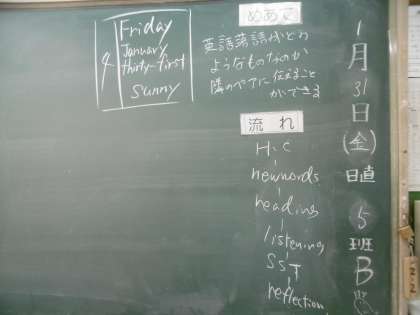 4
Friday
January
thirty-first
sunny
めあて
英語落語がどの
ようなものなのか
隣のペアに伝えること
ができる
流れ
H.C
newwords
heading
listening
SST
reflection
1月31日(金)日直5班B